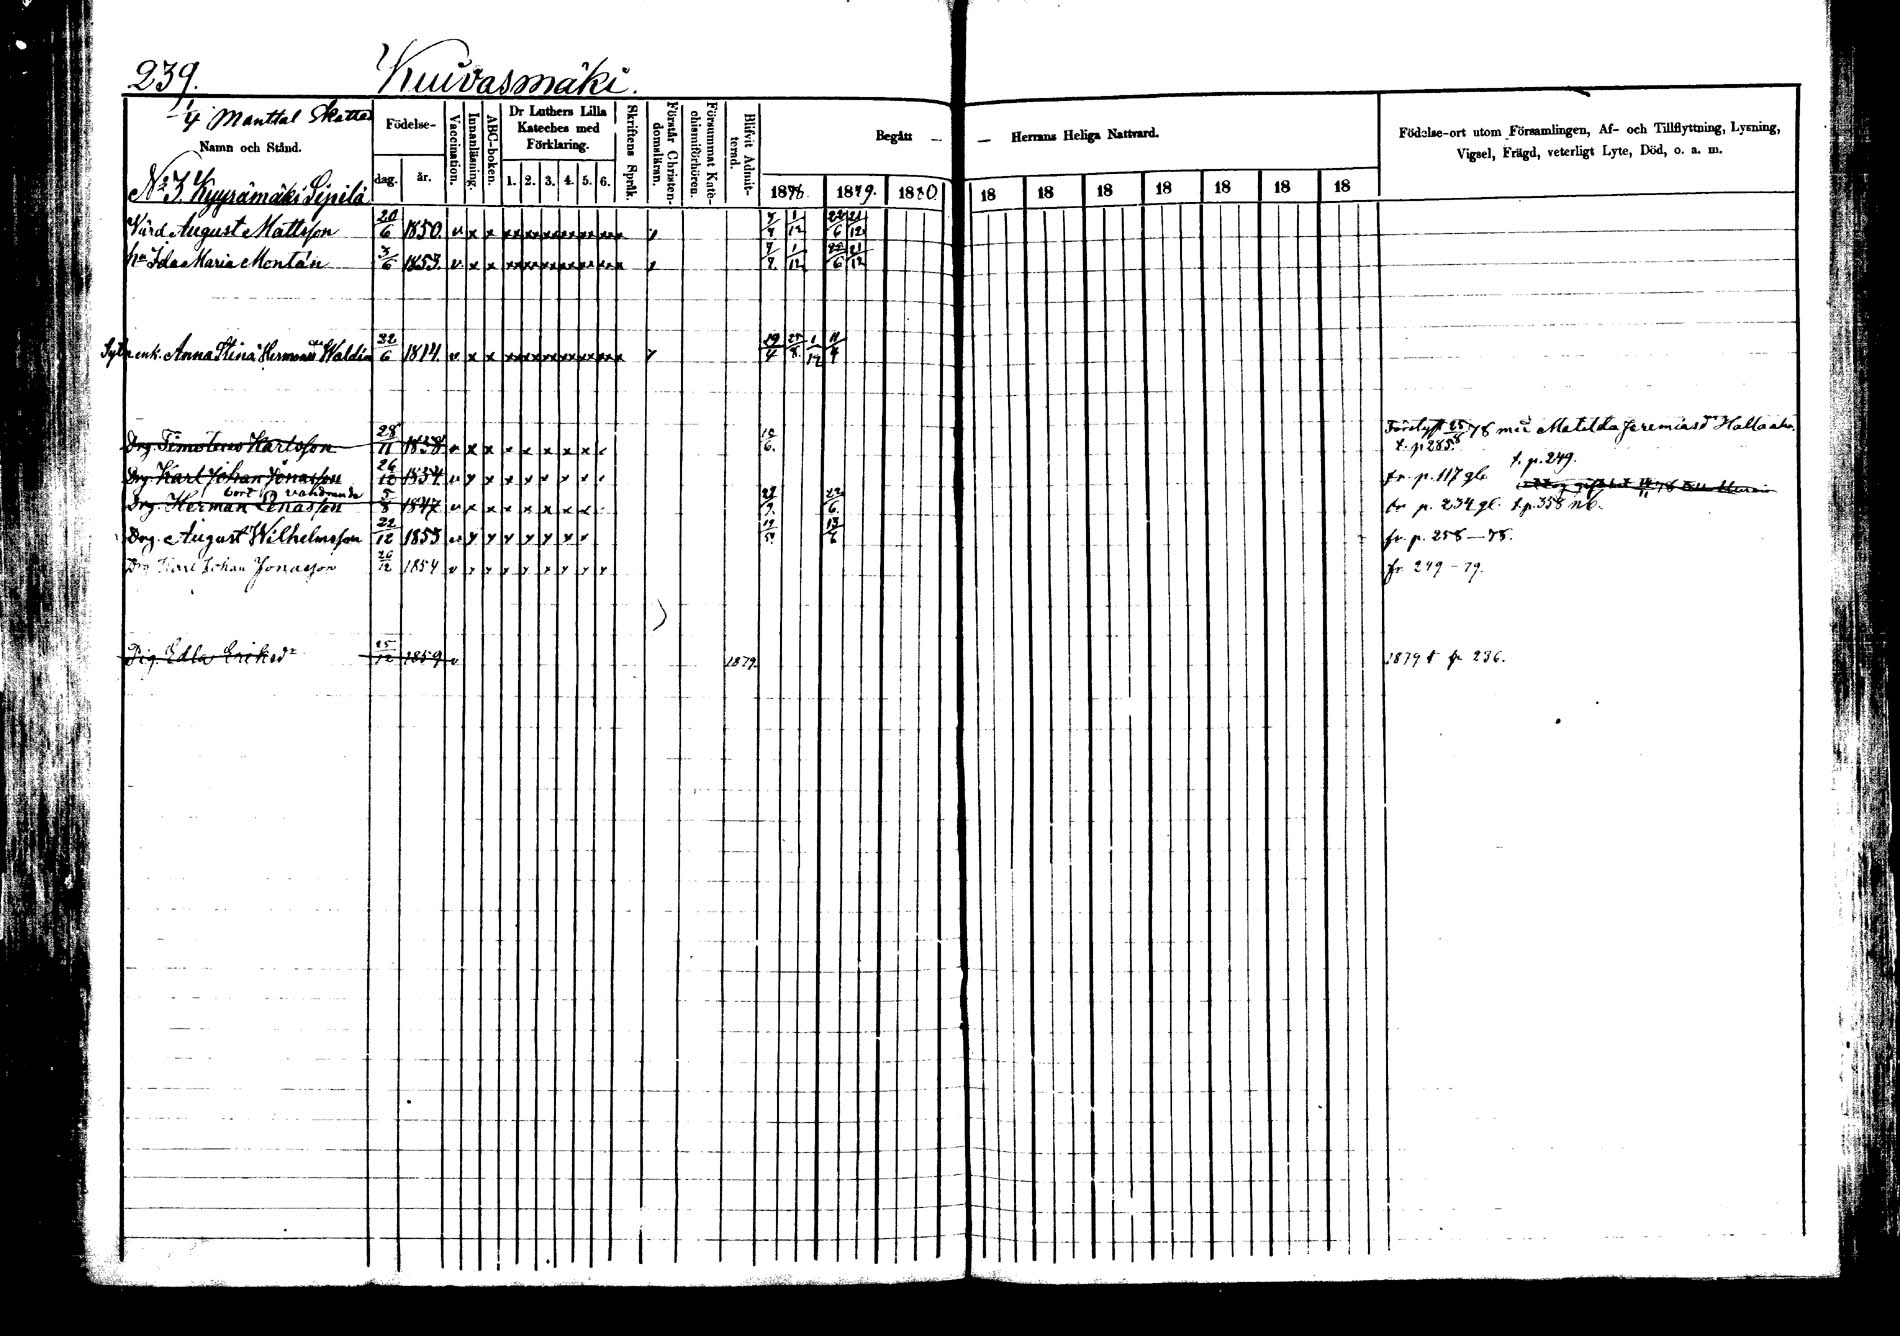 239. Kuivasmäki.
1/4 Manttal Skatte
Namn och Stånd.
Födelse-
dag. år.
Vaccination.
Innanläsning.
ABC-boken.
Dr Luthers Lilla
Kateches med
Förklaring.
1. 2. 3. 4. 5. 6.
Skriftens Språk.
Förstår Christen-
domsläran.
Försummat Kate-
chismiförhören.
Blifvit Admit-
terad.
Begått — — Herrans Heliga Nattvard.
1878. 1879. 1880. 18 18 18 18 18 18 18
Födelse-ort utom Församlingen, Af- och Tillflyttning, Lysning,
Vigsel, Frägd, veterligt Lyte, Död, o. a. m.
No 3 Kyyrämäki Sipilä
Värd August Mattsson 20/6 1850. v x x 1/12 22/6 21/12
hu Ida Maria Montin 3/6 1853. v x x 1/12 22/6 21/12
enk. Anna Stina Hermansdr Waldin 22/6 1814. v x x 19/4 25/8 1/12 11/4
Drg. Timoteus Karlsson 28/11 1838 v x x x x x x x Förelyst 25/8 78 med Matilda Jeremiasdr
t. p. 285.
Drg. Karl Johan Jonasson 26/12 1854. v x x x x x x x fr. p. 117 gb. t. p. 249.
bort vandrande
Drg. Herman Enasson 5/8 1847 v x x x x x x x 22/6 fr p. 234 gl. t. p. 358 nb.
Drg. August Wilhelmsson 22/12 1853 13/6 fr. p. 258—78.
Drg Karl Johan Jonasson 26/12 1854 fr 249—79.
Pig. Edla Eriksdr 25/12 1859 v 1879 1879 t fr 236.